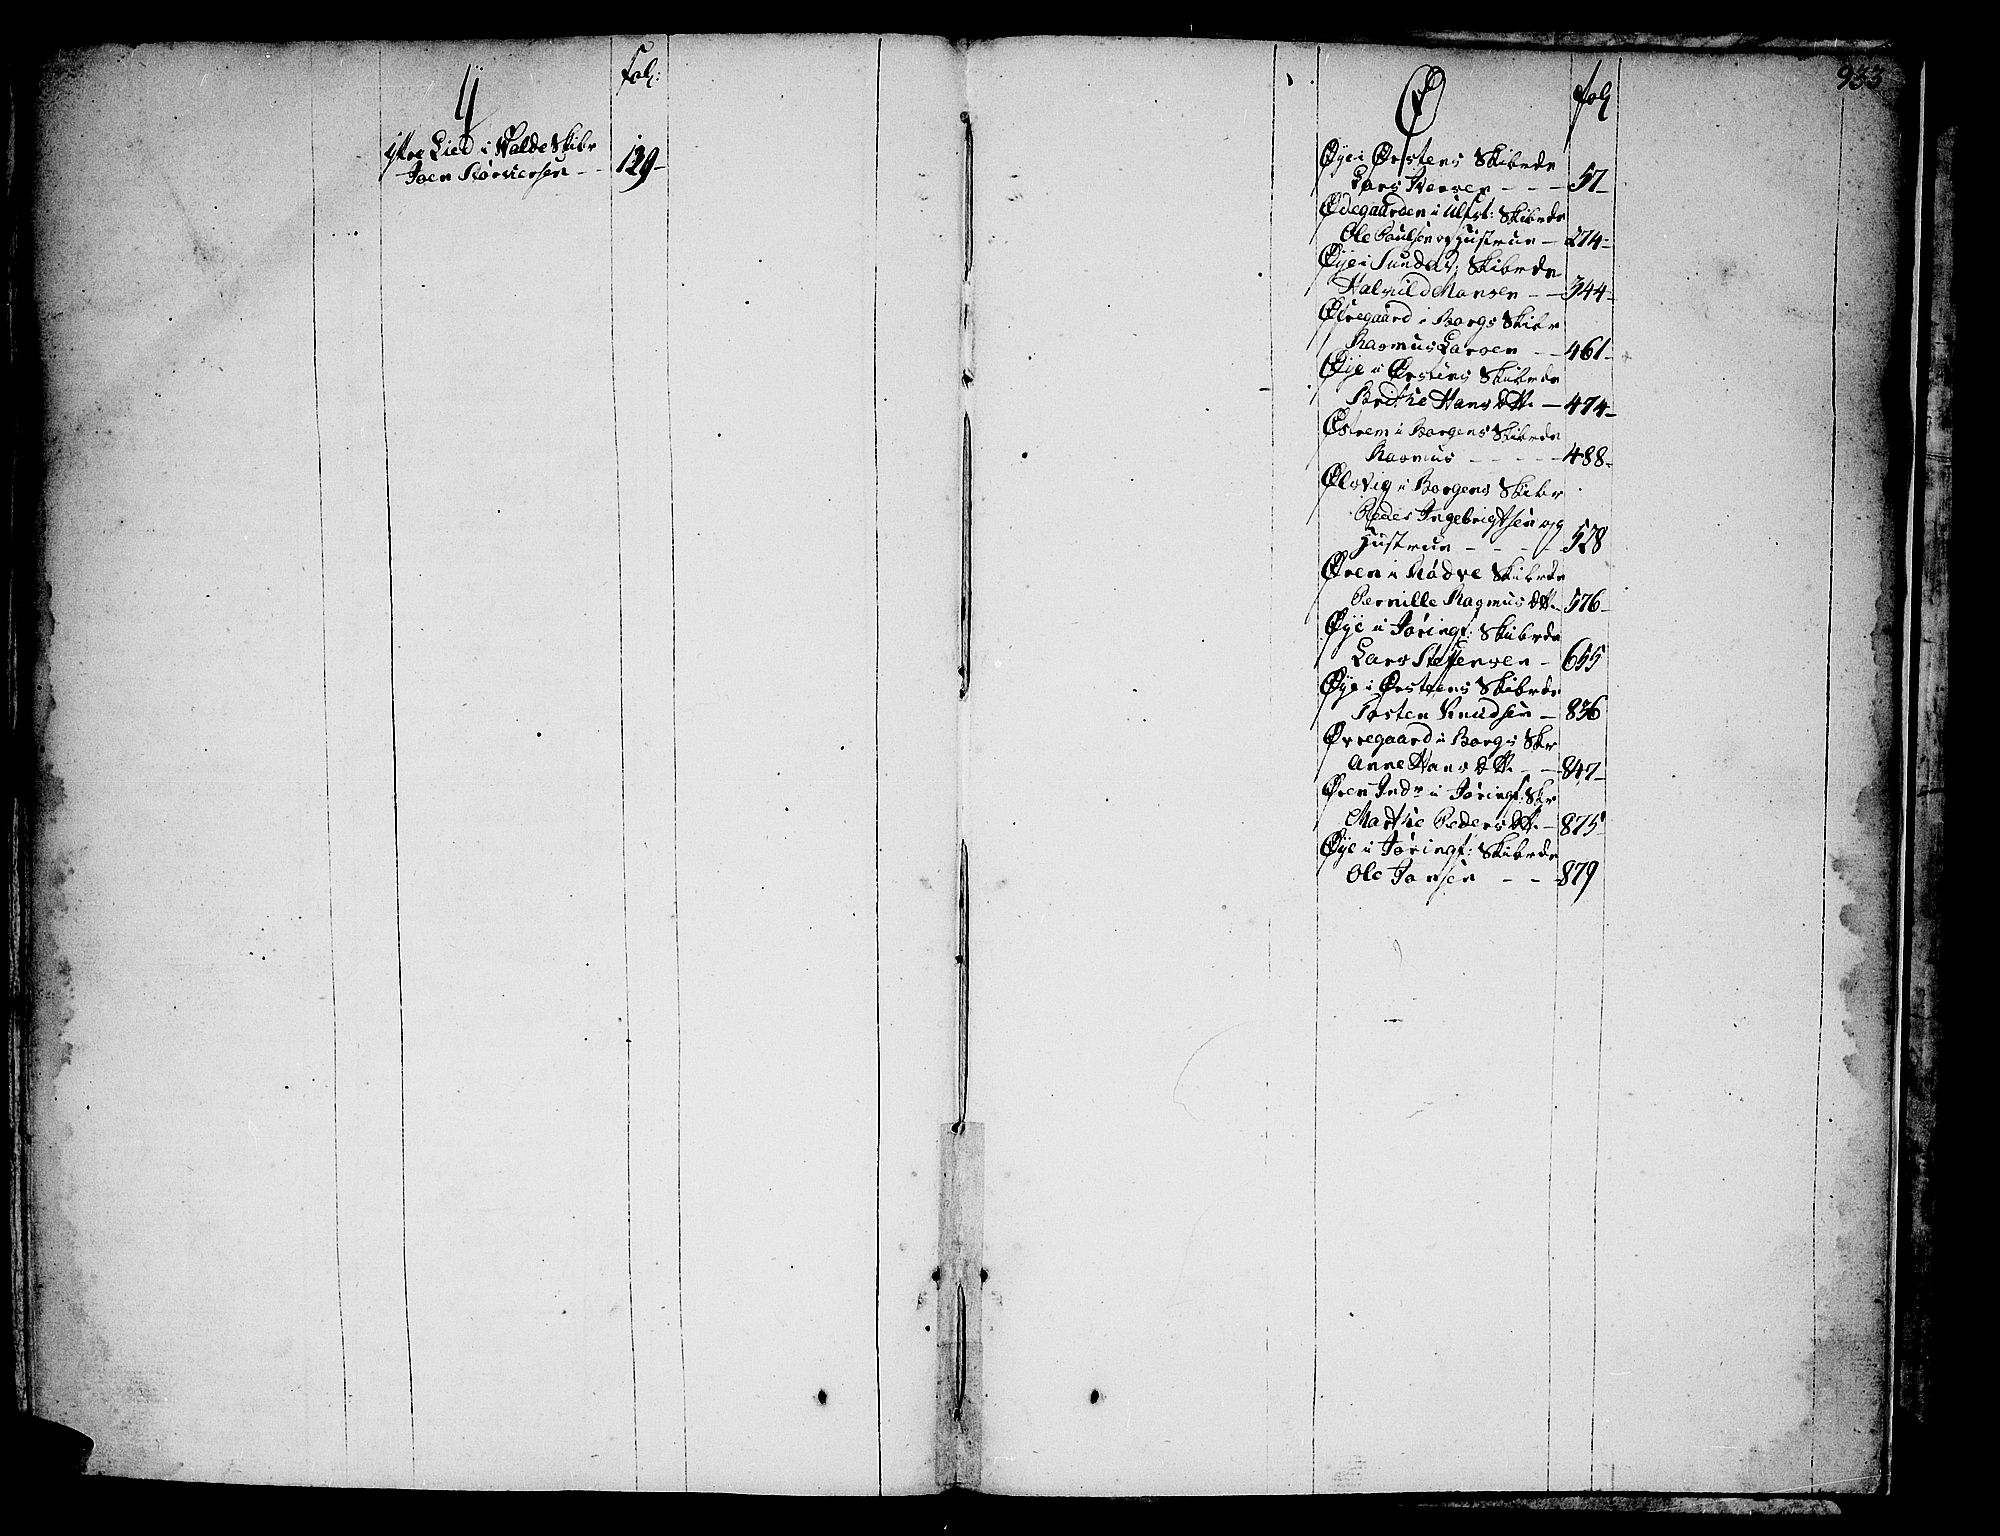 Y
Fol:
Ytre Lied i Walde Skibr
Joen Siversen - - 129-
933
Ø
Fol
Øye i Ørstens Skibrde
Lars Iversen - - - 57-
Ødegaarden i Ulfst: Skibrde
Ole Paulsen og Hustrue - 274-
Øye i Sundals Skibrde
Halvild Monsen - - 344-
Øfregaard i Borgs Skibr
Rasmus Larsen - - 461-
Øye i Ørstens Skibrde
Brithe Hans dtt. - 474-
Østrem i Borgens Skibrde
Rasmus - - - - - 488-
Ølsvig i Borgens Skibr
Peder Ingebrigtsen og
Hustrue - - - - 528
Øren i Rødve Skibrde
Pernille Rasmus dtt. 576-
Øye i Jøringf: Skibrde
Lars Steffensen - 655
Øye i Ørstens Skibrde
Torsten Knudsen - 836
Øvregaard i Borgs Skr
Anne Hans dtt. - - 847-
Øren Indr i Jøringf: Skr
Marthe Peders dtt. - 875
Øye i Jøringf: Skibrde
Ole Jonsen - - - 879